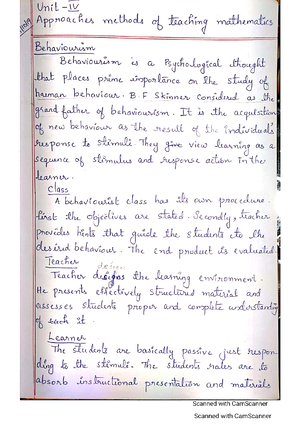 Unit - IV
Approaches methods of teaching mathematics
Behaviourism
Behaviourism is a Psychological thought
that places prime importance on the study of
human behaviour. B.F Skinner considered as the
grand father of behaviourism. It is the acquistion
of new behaviour as the result of the individual's
response to stimuli. They give view learning as a
sequence of stimulus and response action in the
learner.
Class
A behaviourist class has its own procedure.
First the objectives are stated. Secondly, teacher
provides hints that guide the students to the
desired behaviour. The end product is evaluated
Teacher
Teacher designs the learning environment.
He presents effectively structured material and
assesses students proper and complete understanding
of it.
Learner
The students are basically passive just respon-
ding to the stimuli. The students roles are to
absorb instructional presentation and materials
Scanned with CamScanner
Scanned with CamScanner